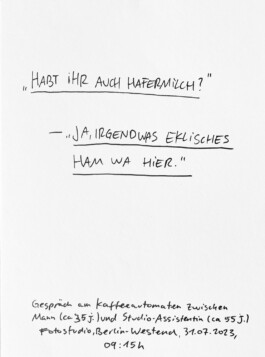 „HABT iHR AUCH HAFERMILCH?"
– „JA, IRGENDWAS EKLISCHES
HAM WA HIER."
Gespräch am Kaffeeautomaten zwischen
Mann (ca 35 J.) und Studio-Assistentin (ca 55 J.)
Fotostudio, Berlin-Westend, 31.07.2023,
09:15h